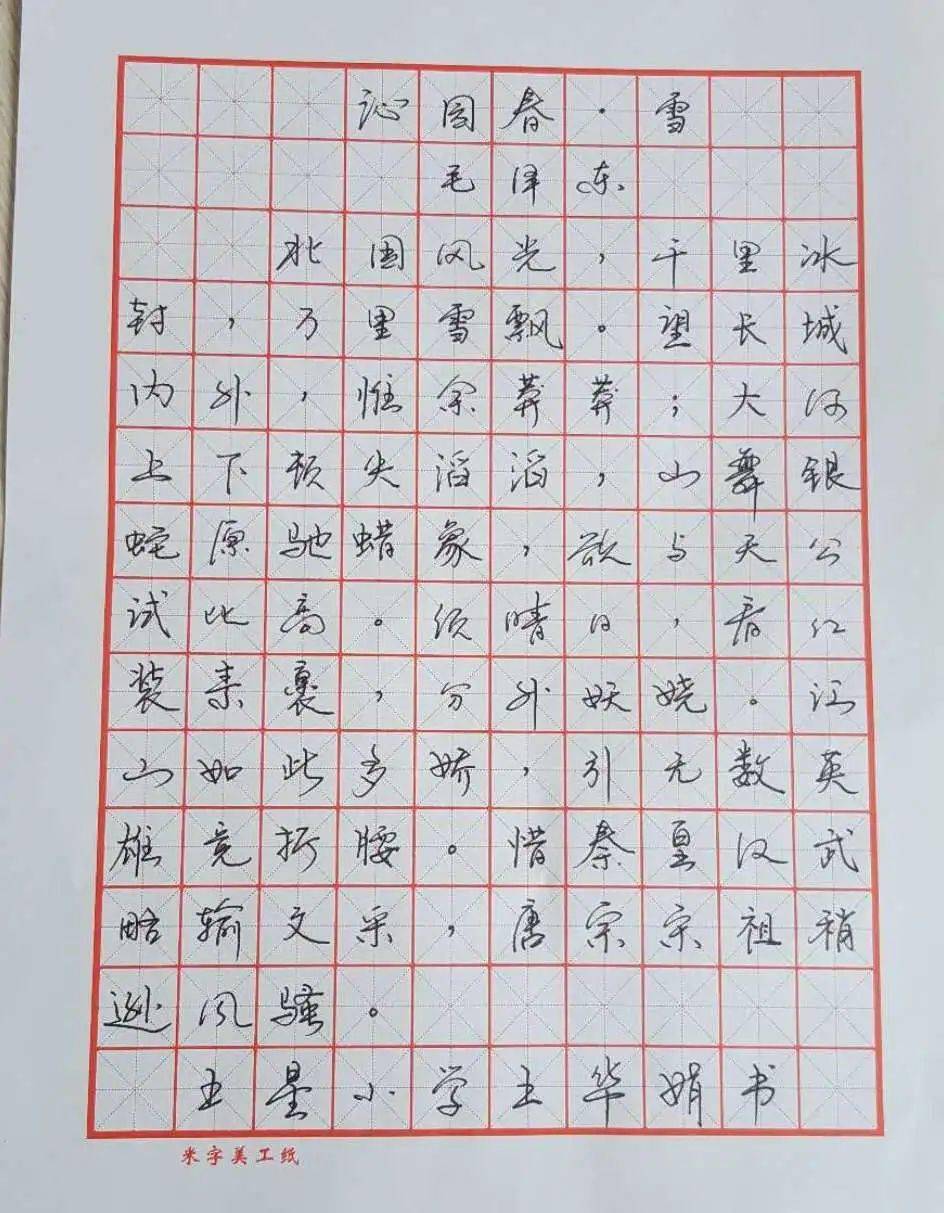 沁园春·雪
毛泽东
北国风光,千里冰
封,万里雪飘。望长城
内外,惟余莽莽;大河
上下顿失滔滔,山舞银
蛇原驰蜡象,欲与天公
试比高。须晴日,看红
装素裹,分外妖娆。江
山如此多娇,引无数英
雄竞折腰。惜秦皇汉武
略输文采,唐宗宋祖稍
逊风骚。
五星小学王华娟书
米字美工纸